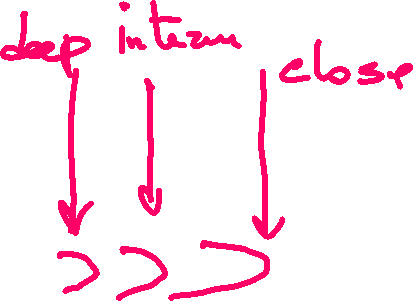 deep interm
close